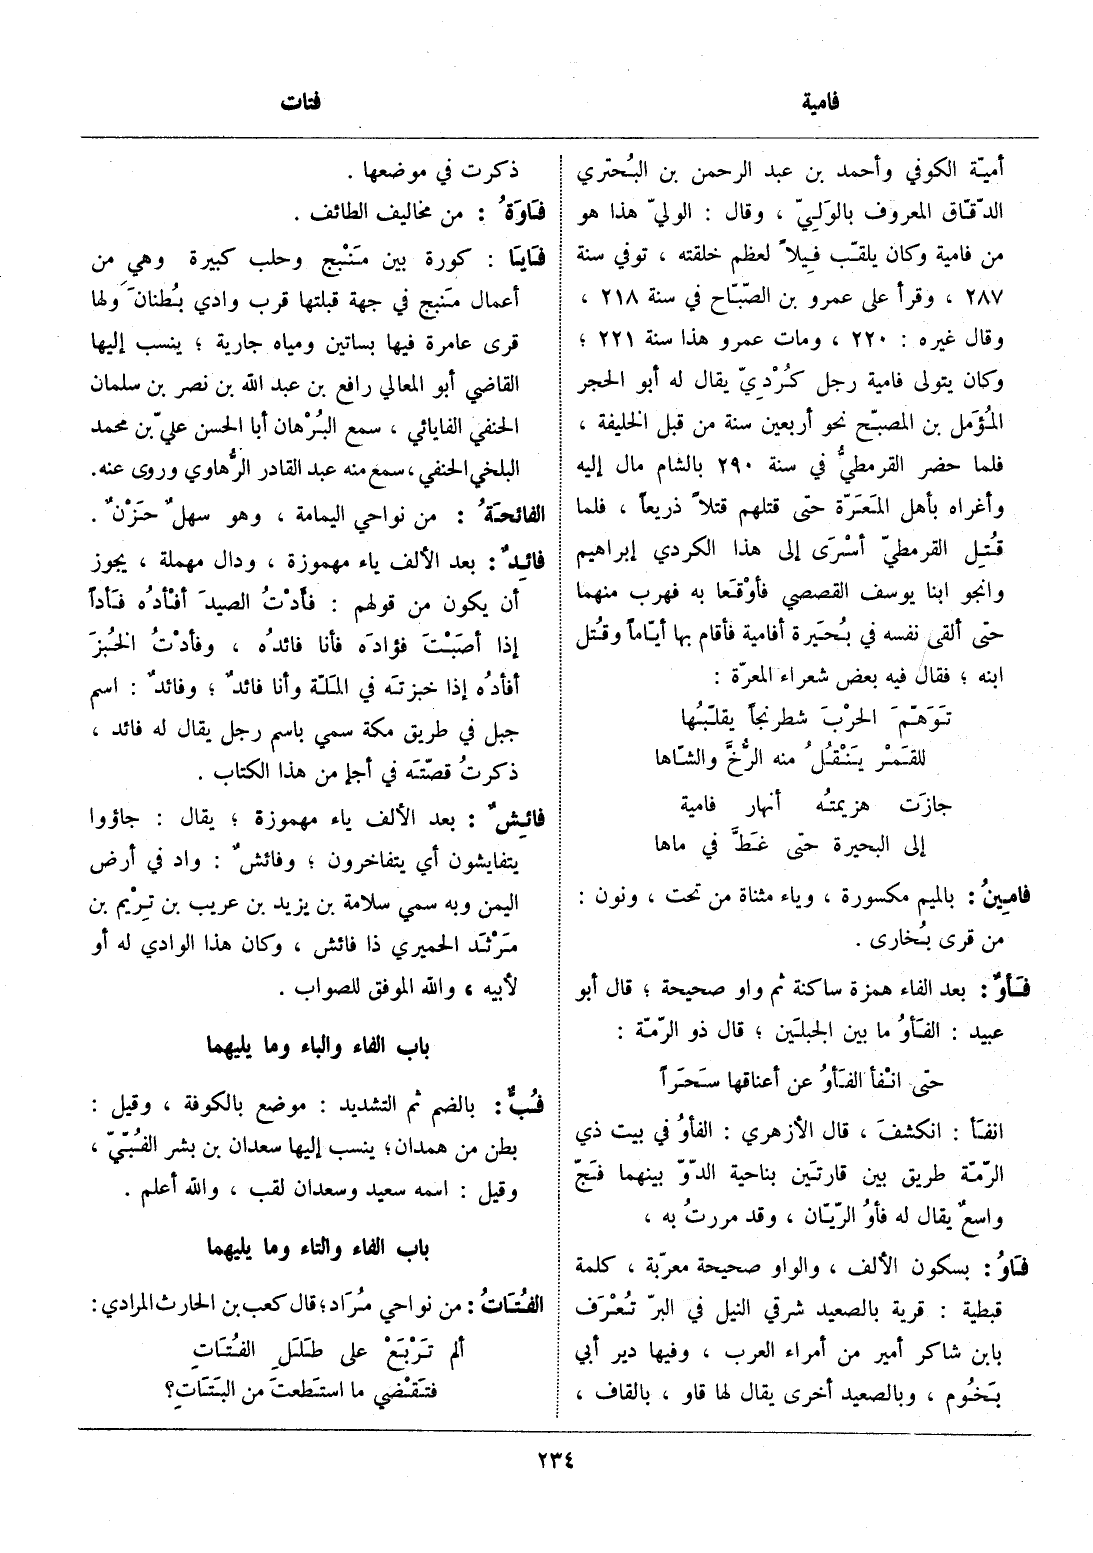 فامية
فتات
أميّة الكوفي وأحمد بن عبد الرحمن بن البُحتري
الدّقّاق المعروف بالوَلِيّ ، وقال : الوليّ هذا هو
من فامية وكان يلقّب فيلاً لعظم خلقته ، توفي سنة
٢٨٧ ، وقرأ على عمرو بن الصّبّاح في سنة ٢١٨ ،
وقال غيره : ٢٢٠ ، ومات عمرو هذا سنة ٢٢١ ؛
وكان يتولى فامية رجل كُرْدِيّ يقال له أبو الحجر
المُؤَمل بن المصبّح نحو أربعين سنة من قبل الخليفة ،
فلما حضر القرمطيُّ في سنة ٢٩٠ بالشام مال إليه
وأغراه بأهل المَعَرّة حتى قتلهم قتلاً ذريعاً ، فلما
قُتِل القرمطيّ أسْرَى إلى هذا الكردي إبراهيم
وانجو ابنا يوسف القصصي فأوْقَعا به فهرب منهما
حتى ألقى نفسه في بُحَيرة أفامية فأقام بها أيّاماً وقُتل
ابنه ؛ فقال فيه بعض شعراء المعرّة :
تَوَهّمَ الحرْبَ شطرنجاً يقلّبُها
للقَمْر يَنْقُلُ منه الرُّخَّ والشّاها
جازَت هزيمتُه أنهار فامية
إلى البحيرة حتى غَطَّ في ماها
فامِينُ : بالميم مكسورة ، وياء مثناة من تحت ، ونون :
من قرى بُخارى .
فَأوٌ : بعد الفاء همزة ساكنة ثم واو صحيحة ؛ قال أبو
عبيد : الفَأوُ ما بين الجبلَين ؛ قال ذو الرّمّة :
حتى انْفأ الفَأوُ عن أعناقها سَحَرَاً
انفَأ : انكشفَ ، قال الأزهري : الفأوُ في بيت ذي
الرّمّة طريق بين قارتَين بناحية الدّوّ بينهما فَجّ
واسعٌ يقال له فأوُ الرّيّان ، وقد مررتُ به ،
فَاوُ : بسكون الألف ، والواو صحيحة معرّبة ، كلمة
قبطية : قرية بالصعيد شرقي النيل في البرّ تُعْرَف
بابن شاكر أمير من أمراء العرب ، وفيها دير أبي
بَخُوم ، وبالصعيد أخرى يقال لها قاو ، بالقاف ،
ذكرت في موضعها .
فَاوَةُ : من مخاليف الطائف .
فَايَا : كورة بين مَنْبِج وحلب كبيرة وهي من
أعمال مَنبج في جهة قبلتها قرب وادي بُطنانَ ولها
قرى عامرة فيها بساتين ومياه جارية ؛ ينسب إليها
القاضي أبو المعالي رافع بن عبد الله بن نصر بن سلمان
الحنفي الفايائي ، سمع البُرْهان أبا الحسن عليّ بن محمد
البلخي الحنفي ، سمع منه عبد القادر الرُّهاوي وروى عنه.
الفائحَةُ : من نواحي اليمامة ، وهو سهلٌ حَزْنٌ .
فائِدٌ : بعد الألف ياء مهموزة ، ودال مهملة ، يجوز
أن يكون من قولهم : فأدْتُ الصيدَ أفْأدُه فَأداً
إذا أصَبْتَ فؤادَه فأنا فائدُه ، وفأدْتُ الخُبزَ
أفأدُه إذا خبزتَه في المَلّة وأنا فائدٌ ؛ وفائدٌ : اسم
جبل في طريق مكة سمي باسم رجل يقال له فائد ،
ذكرتُ قصّتَه في أجإ من هذا الكتاب .
فائِشٌ : بعد الألف ياء مهموزة ؛ يقال : جاؤوا
يتفايشون أي يتفاخرون ؛ وفائشٌ : واد في أرض
اليمن وبه سمي سلامة بن يزيد بن عريب بن تِرْيم بن
مَرْثَد الحميري ذا فائش ، وكان هذا الوادي له أو
لأبيه ، والله الموفق للصواب .
باب الفاء والباء وما يليهما
فُبٌّ : بالضم ثم التشديد : موضع بالكوفة ، وقيل :
بطن من همدان؛ ينسب إليها سعدان بن بشر الفُبّيّ ،
وقيل : اسمه سعيد وسعدان لقب ، والله أعلم .
باب الفاء والتاء وما يليهما
الفُتَاتُ : من نواحي مُرَاد؛ قال كعب بن الحارث المرادي :
ألم تَرْبَعْ على طَلَلِ الفُتَاتِ
فتَقْضي ما استَطعتَ من البَتَاتِ؟
٢٣٤